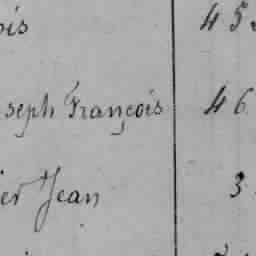 ois 45
seph François 46
er Jean 3